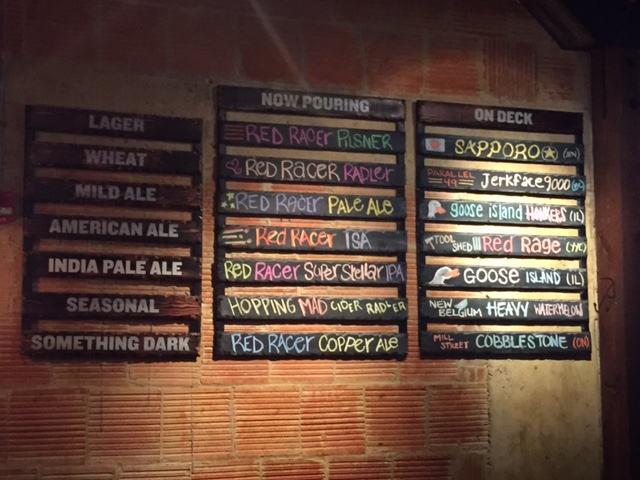 LAGER
WHEAT
MILD ALE
AMERICAN ALE
INDIA PALE ALE
SEASONAL
SOMETHING DARK
NOW POURING
RED RACER PILSNER
RED RACER RADLER
RED RACER PALE ALE
RED RACER ISA
RED RACER SUPER STELLAR IPA
HOPPING MAD CIDER RADLER
RED RACER COPPER ALE
ON DECK
SAPPORO
PARALLEL 49 Jerkface9000
goose island HONKERS (IL)
TOOL SHED Red Rage (YYC)
GOOSE ISLAND (IL)
NEW BELGIUM HEAVY WATERMELON
MILL STREET COBBLESTONE (ON)